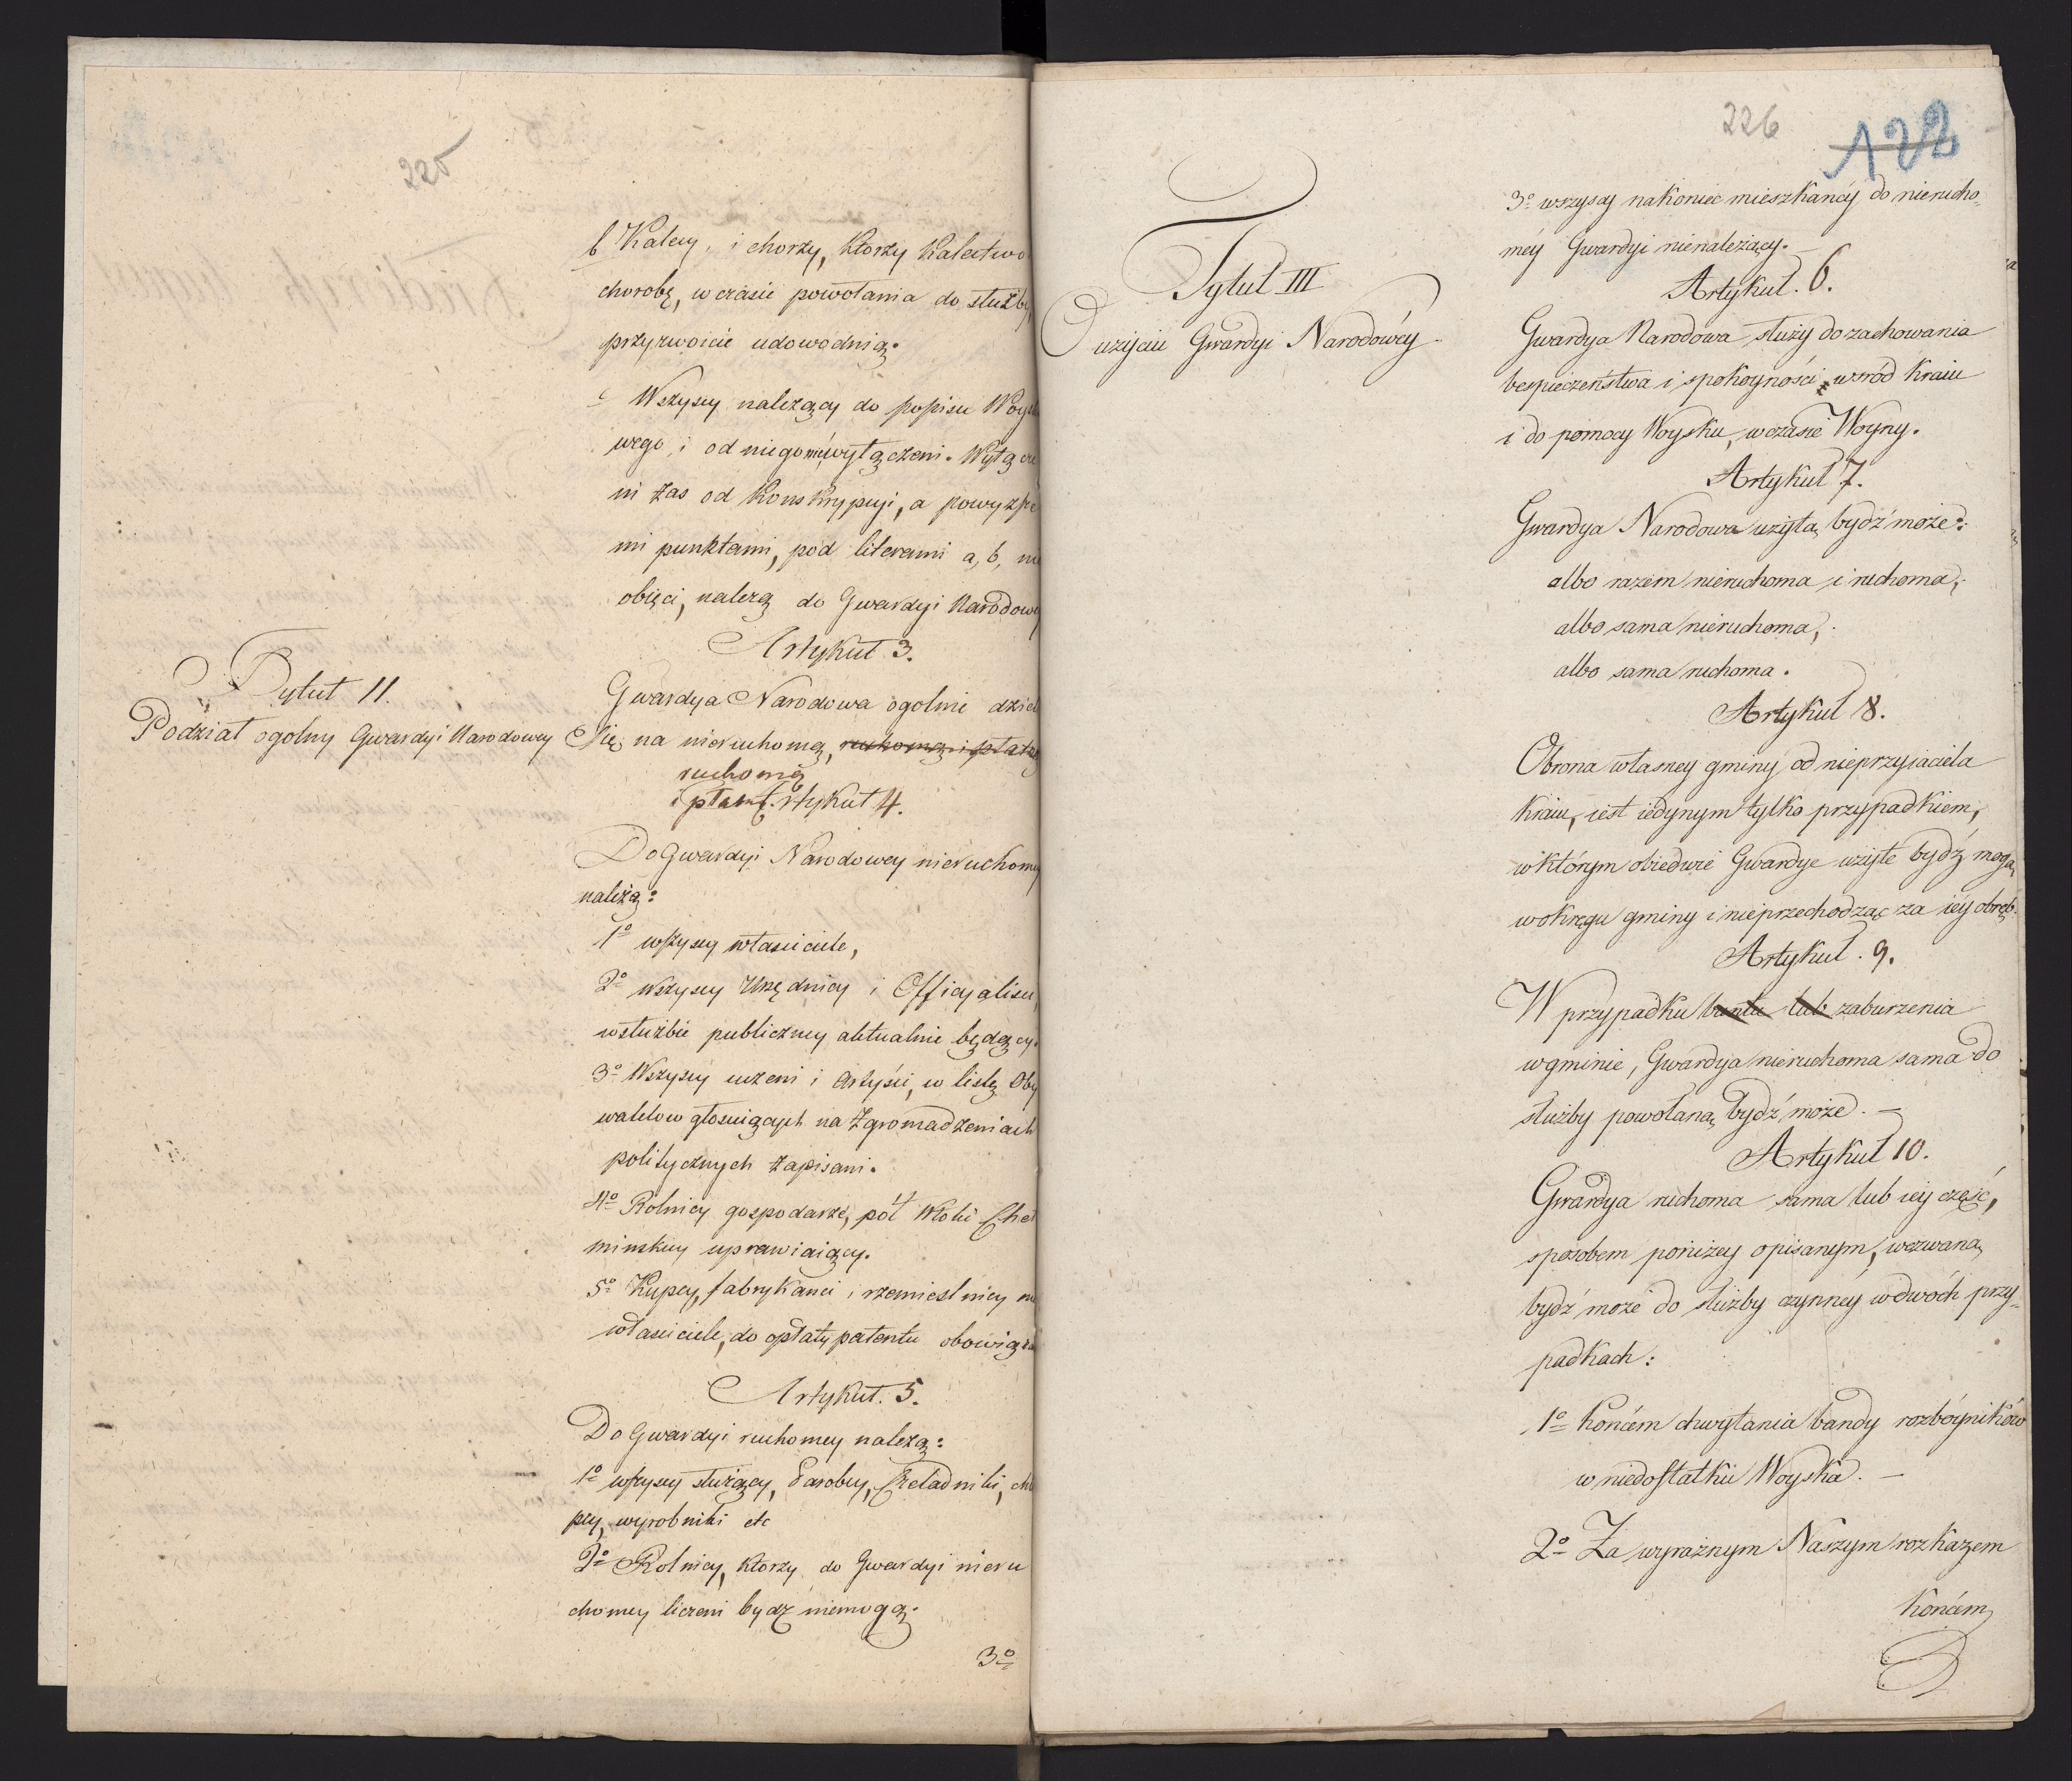 225
b Kalecy, i chorzy, ktorzy Kalectwo
chorobę, w czasie powołania do służby
przyzwoicie udowodnią.
c Wszyscy nalezący do popisu Woysk
wego, i od niego niewyłączeni. Wyłącze
ni zas od Konskrypcyi, a powyższe
mi punktami, pod literami a, b, nie
obięci, nalezą do Gwardyi Narodowey
Artykuł 3.
Tytuł II.
Podział ogolny Gwardyi Narodowey
Gwardya Narodowa ogolnie dziel
się na nieruchomą, ruchomą i płatną
ruchomą
i płatną.
Artykuł 4.
Do Gwardyi Narodowey nieruchomey
należą:
1º wszyscy własciciele,
2º wszyscy Urzędnicy i Officyalisci,
w służbie publiczney aktualnie będący.
3º Wszyscy uczeni i Artyści, w listę Oby
watelow głosuiących na Zgromadzeniach
politycznych zapisani.
4º Rolnicy gospodarze, pół Włoki Cheł
minskiey uprawiaiący.
5º Kupcy, fabrykanci i rzemieslnicy nie
własciciele, do opłaty patentu obowiąza
Artykuł. 5.
Do Gwardyi ruchomey nalezą:
1º wszyscy służący, Parobcy, Czeladniki, chło
pcy, wyrobniki etc
2º Rolnicy, ktorzy do Gwardyi nieru
chomey liczeni bydz niemogą.
3º
226
122
3º wszyscy nakoniec mieszkańcy do nierucho=
méy Gwardyi nienależący.
Tytuł III
O użyciu Gwardyi Narodowéy.
Artykuł. 6.
Gwardya Narodowa służy do zachowania
bespieczeństwa i spokoyności wsród Kraiu
i do pomocy Woysku, w czasie Woyny.
Artykuł 7.
Gwardya Narodowa użytą bydź może:
albo razem nieruchoma i ruchoma,
albo sama nieruchoma,
albo sama ruchoma.
Artykuł 8.
Obrona własney gminy od nieprzyiaciela
Kraiu, iest iedynym tylko przypadkiem,
w którym obiedwie Gwardye użyte bydź mogą,
w okręgu gminy i nieprzechodząc za iéy obręb.
Artykuł. 9.
W przypadku buntu lub zaburzenia
w gminie, Gwardya nieruchoma sama do
służby powołaną bydź może. —
Artykuł 10.
Gwardya ruchoma sama lub iéy część,
sposobem poniżey opisanym, wezwaną
bydź może do służby czynnéy w dwóch przy=
padkach:
1º Końcem chwytania bandy rozbóyników
w niedostatku Woyska. —
2º Za wyraźnym Naszym rozkazem
Końcem